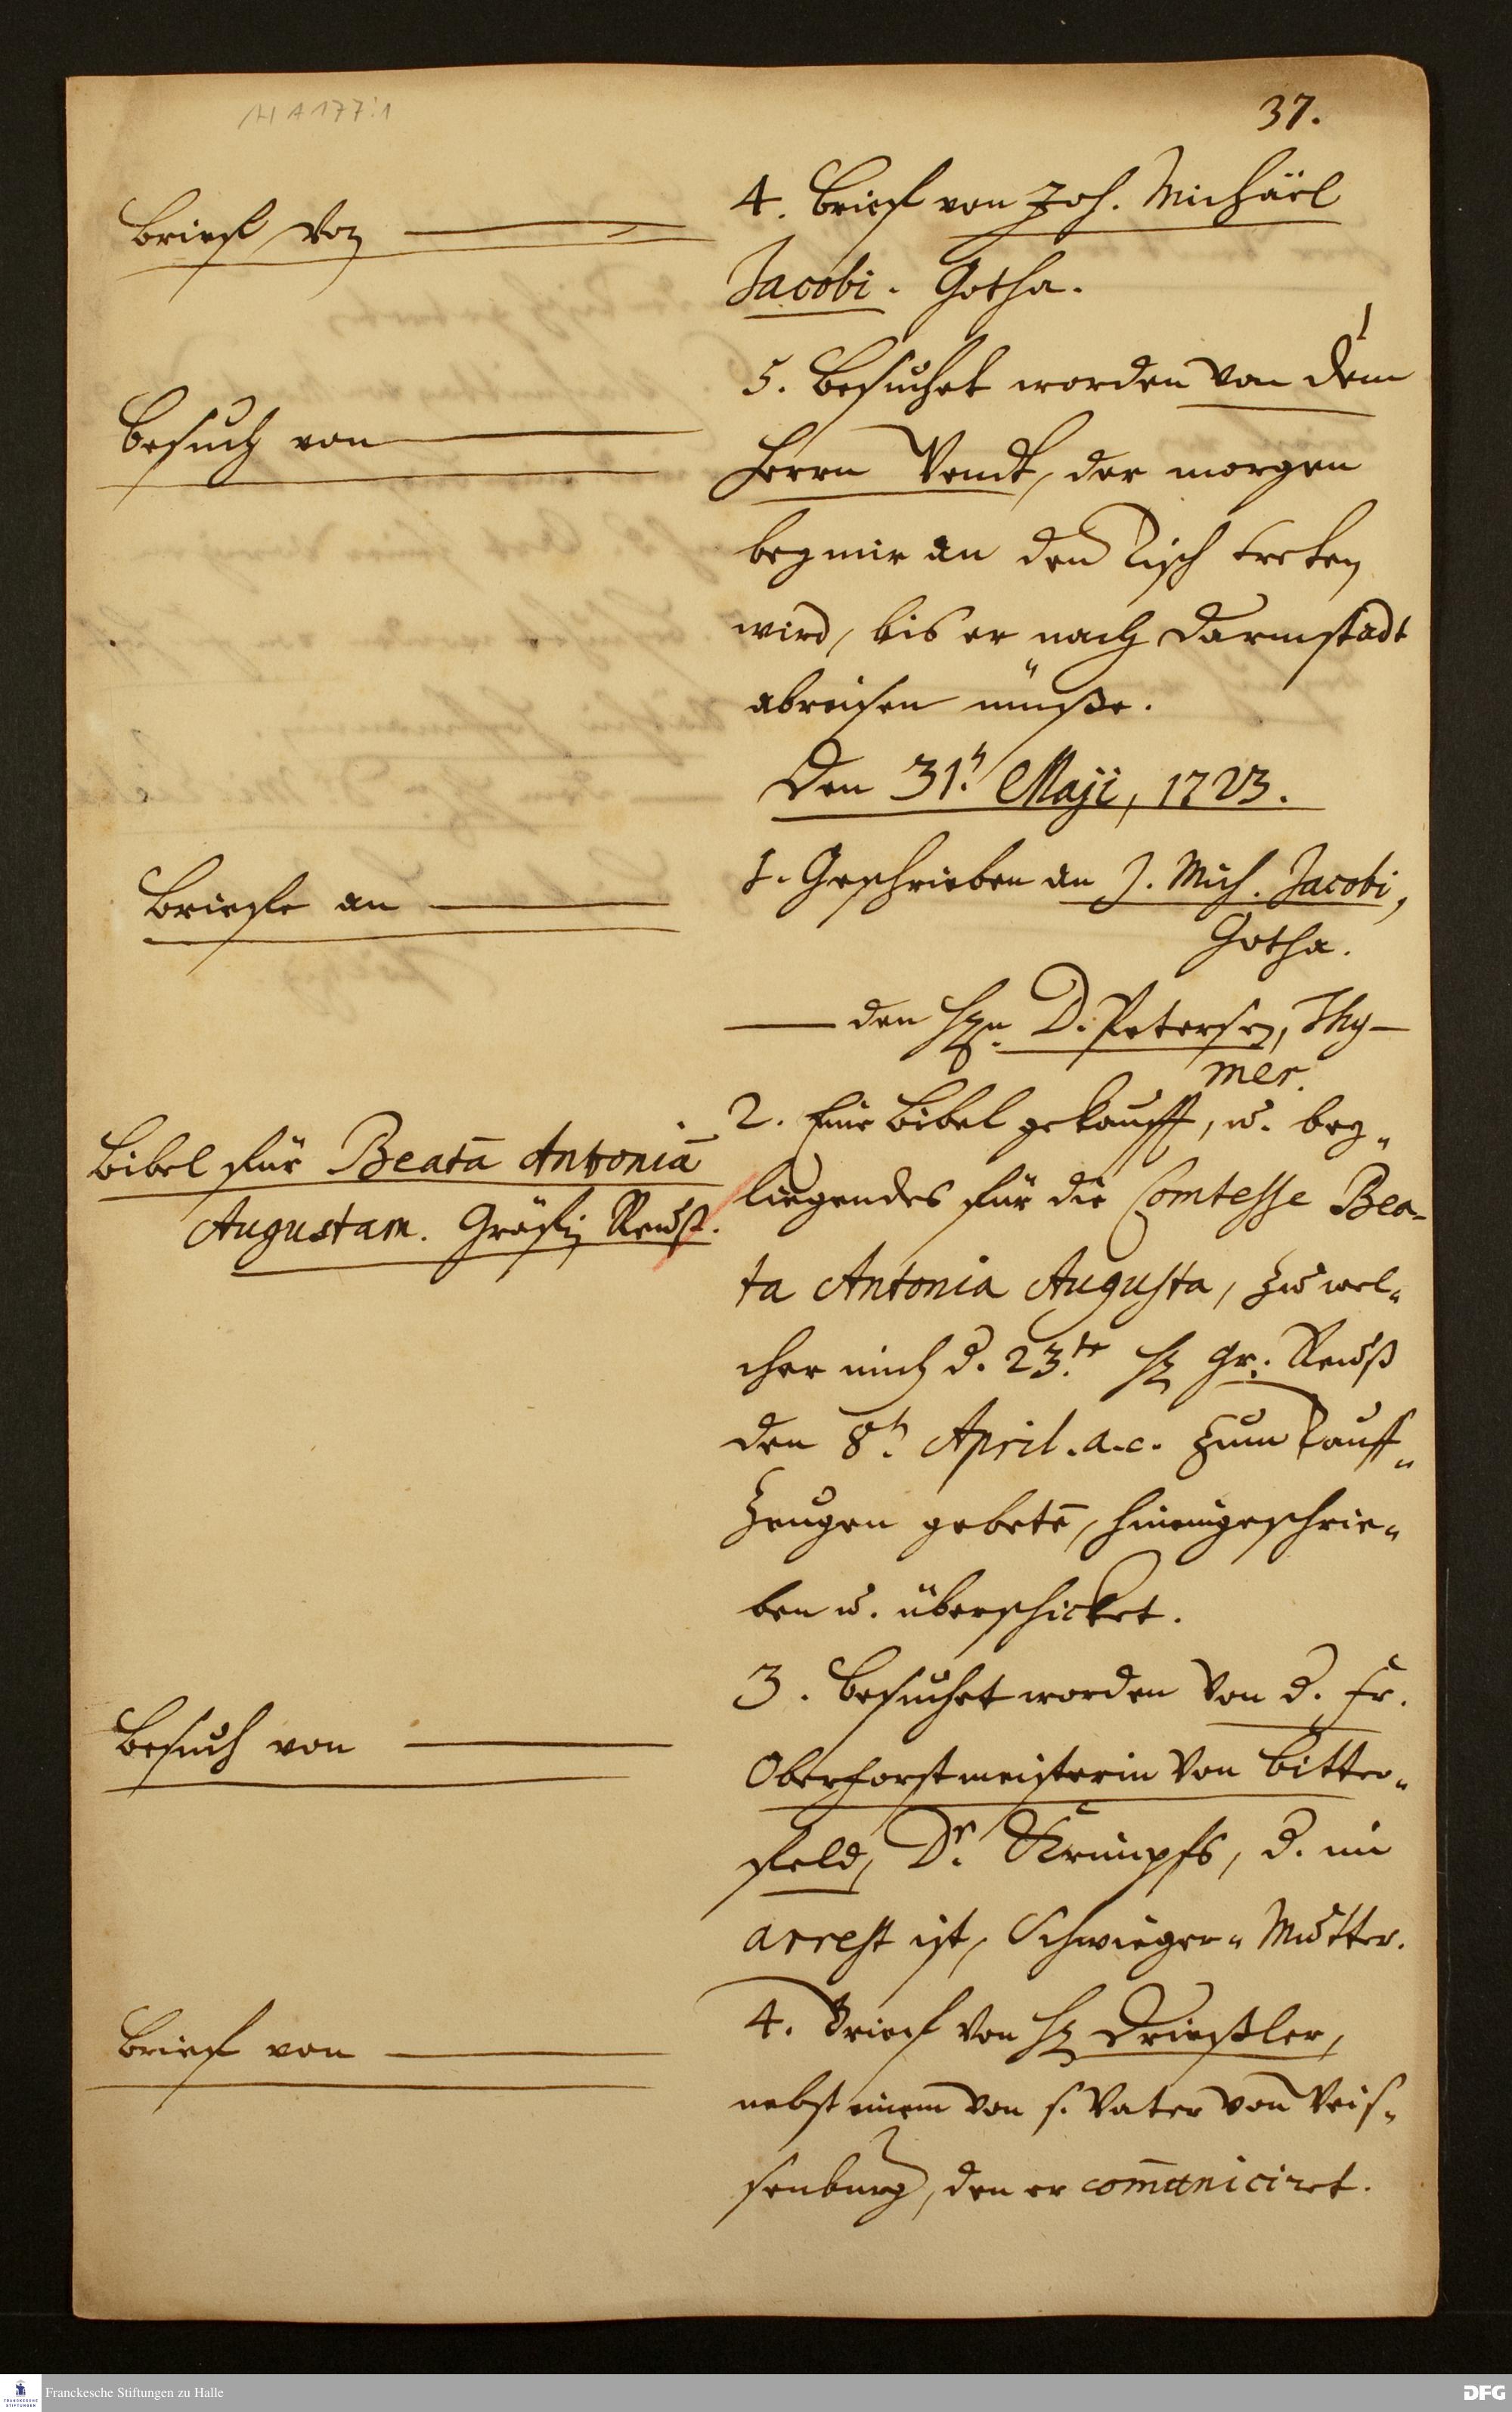 HA 177:1
37.
Brief von
4. Brief von Joh. Michäel
Jacobi. Gotha.
Besuch von
5. Besuchet worden von dem
Herrn Vendt, der morgen
bey mir an den Tisch treten
wird, bis er nach Darmstadt
abreisen müße.
Den 31.t Maji, 1723.
Briefe an
1. Geschrieben an J. Mich. Jacobi,
Gotha.
den Hrn. D. Petersen, Thy-
mer.
Bibel für Beatā Antoniā
Augustam. Gräfin Reuß.
2. Eine Bibel gekaufft, u. bey-
liegendes für die Comtesse Bea-
ta Antonia Augusta, zu wel-
cher mich d. 23.te H Gr. Reuß
den 8.t April. a. c. zum Tauff-
Zeugen gebetē, hineingeschrie-
ben u. überschicket.
Besuch von
3. Besuchet worden von d. Fr.
Oberforstmeisterin von Bitter-
feld, Dr. Strumpfs, d. im
arrest ist, Schwieger-Mutter.
Brief von
4. Brief von H Drießler,
nebst einem von s. Vater von Weis-
senburg, den er com̄uniciret.
Franckesche Stiftungen zu Halle
DFG